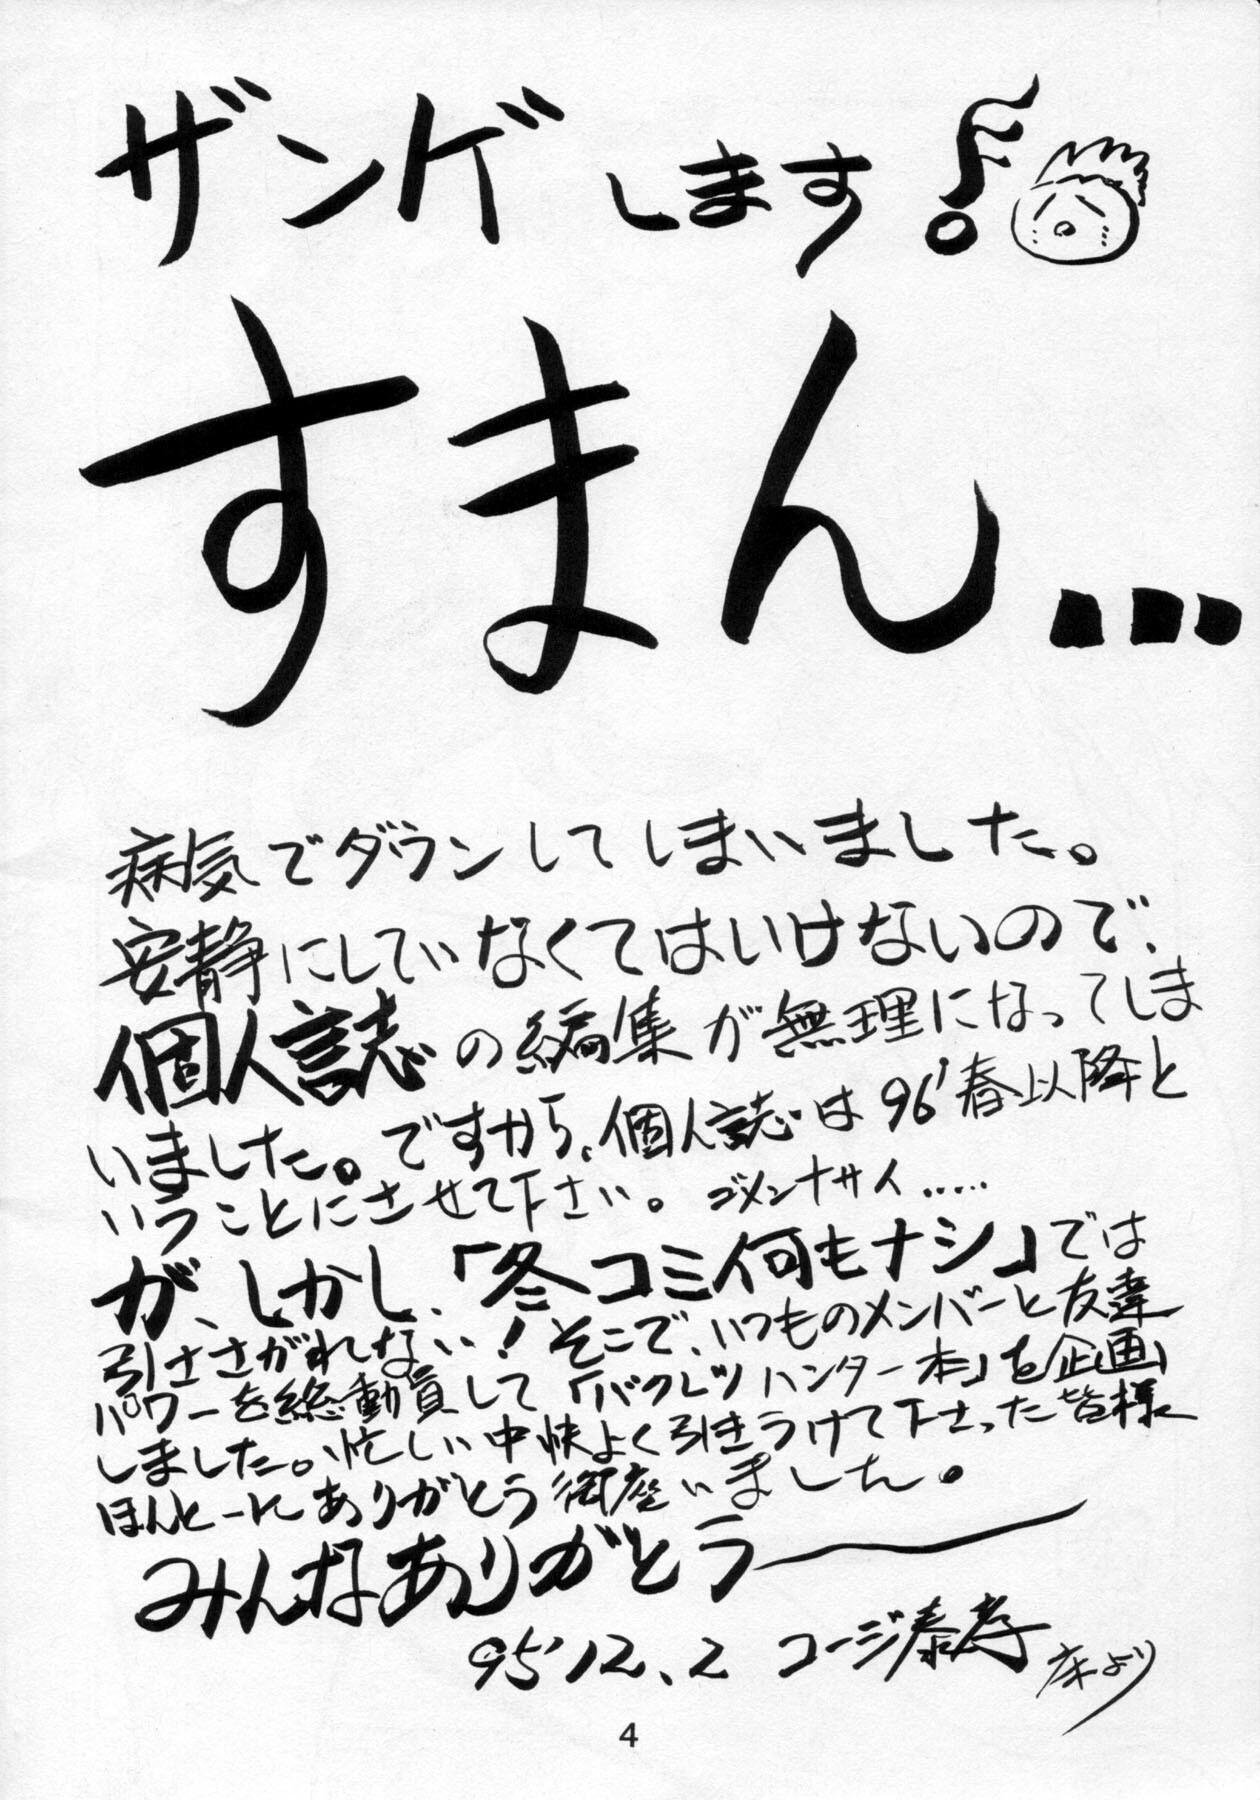 ザンゲします!
すまん…
病気でダウンしてしまいました。
安静にしていなくてはいけないので、
個人誌の編集が無理になってしま
いました。ですから、個人誌は96'春以降と
いうことにさせて下さい。ゴメンナサイ.....
が、しかし、「冬コミ何もナシ」では
引きさがれない!そこで、いつものメンバーと友達
パワーを総動員して「バクレツハンター本」を企画
しました。忙しい中快よく引きうけて下さった皆様
ほんとーにありがとう御座いました。
みんなありがとうー
95'12.2 コージ泰孝 床より
4